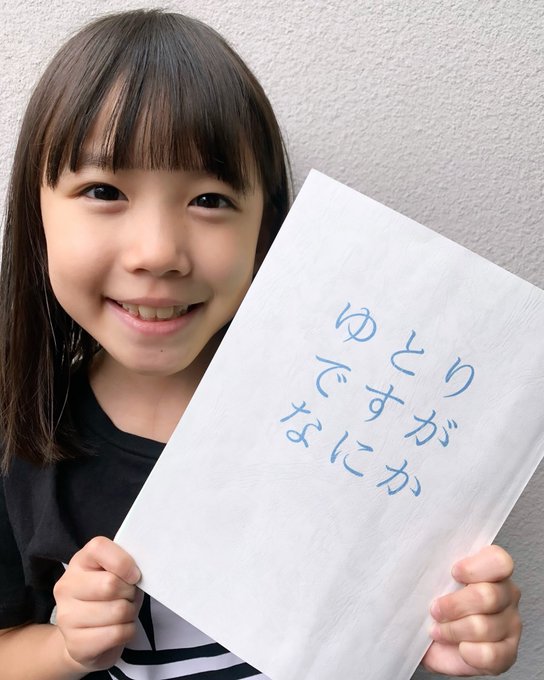 ゆとり
ですが
なにか